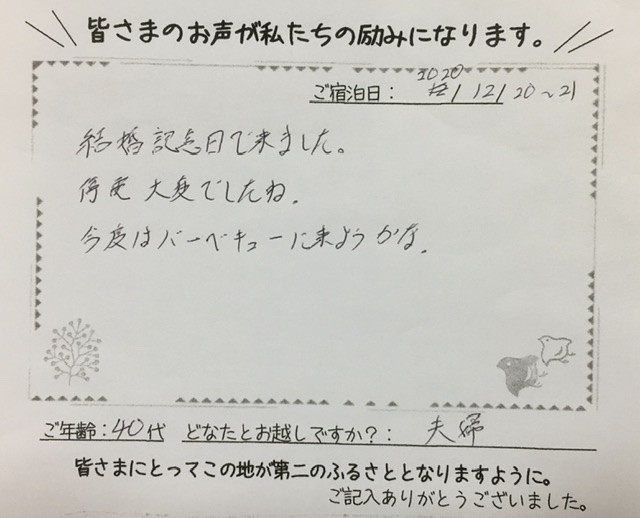 皆さまのお声が私たちの励みになります。
ご宿泊日: 2020 12/20~21
結婚記念日で来ました。
停電大変でしたね。
今度はバーベキューに来ようかな。
ご年齢:40代 どなたとお越しですか?: 夫婦
皆さまにとってこの地が第二のふるさととなりますように。
ご記入ありがとうございました。